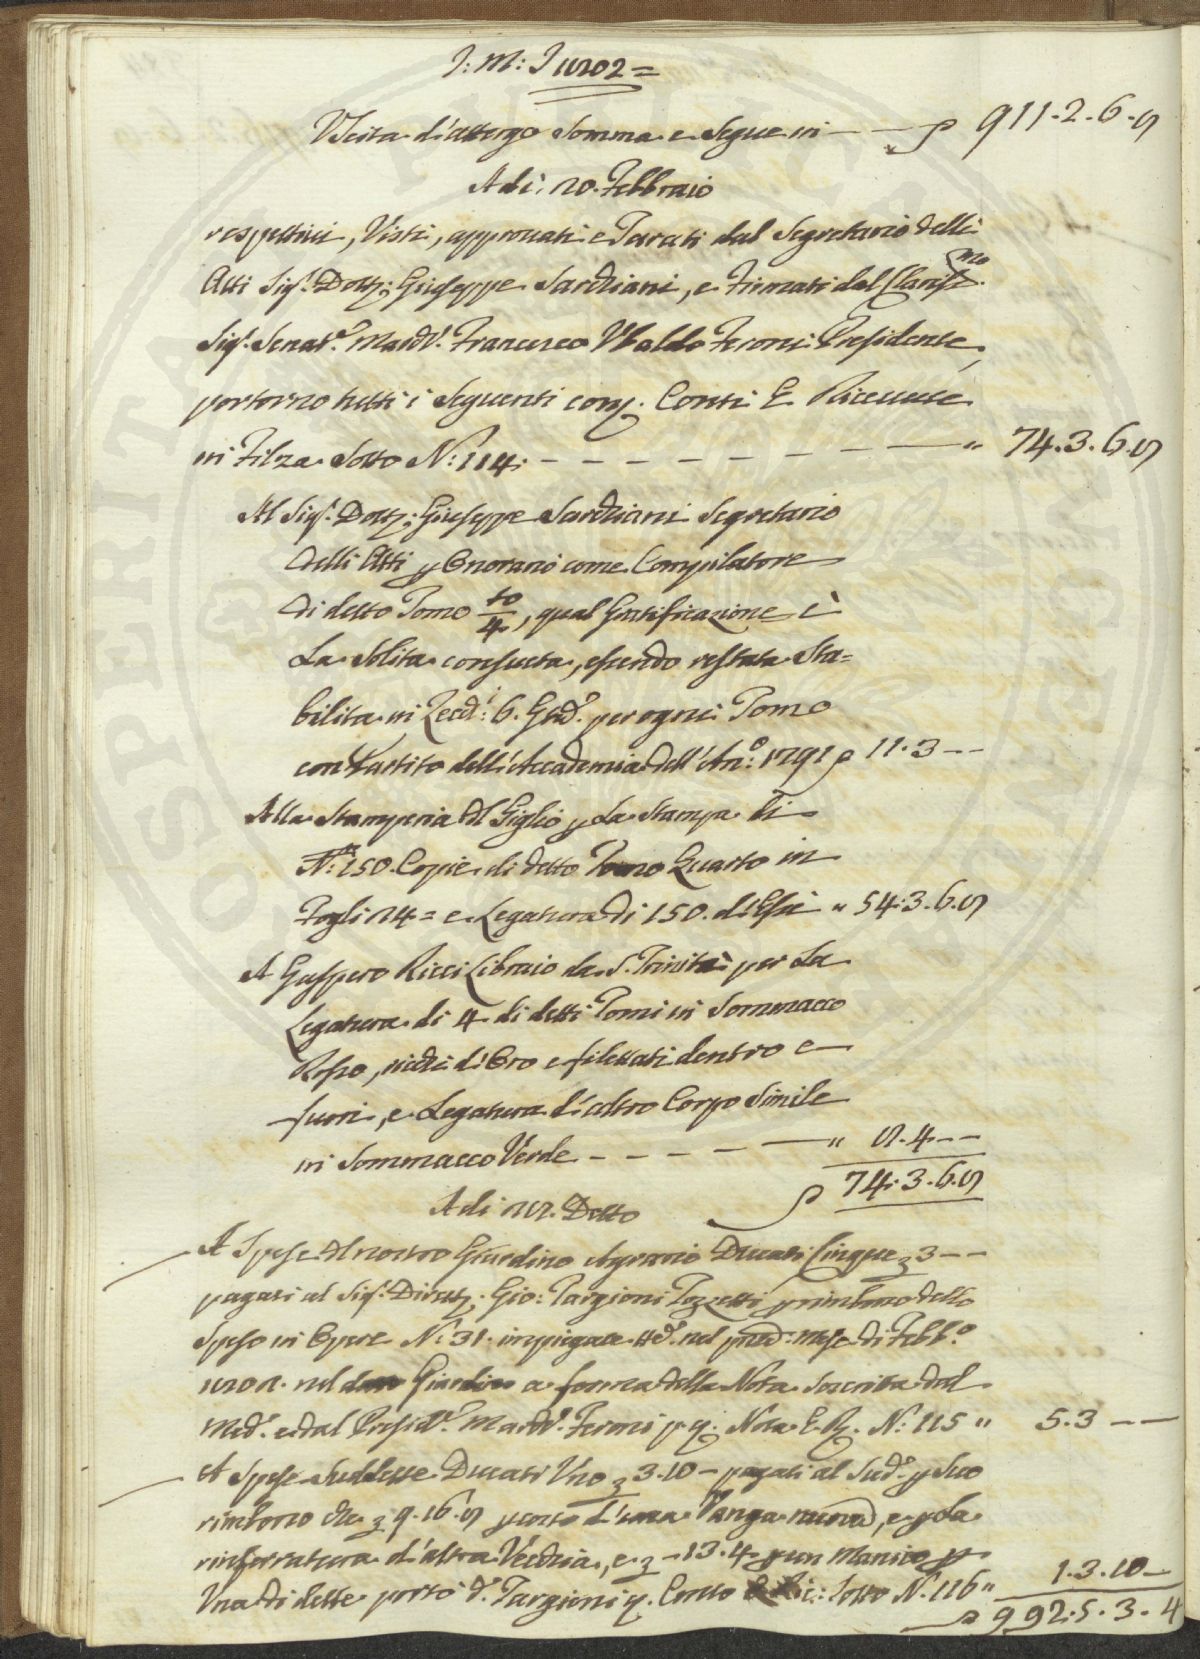 I: M: I 1802 =
Uscita d'attergo Somma e Segue in — — ρ 911.2.6.8
Adì: 20. Febbraio
respettivi, Visti, approvati e Tarati dal Segretario delli
Atti Sig.r Dott.r Giuseppe Sarchiani, e firmati dal Claris.mo
Sig.r Senat.e March.e Francesco Ubaldo Feroni Presidente,
portorno tutti i Seguenti come Conti E Ricevute
in Filza Sotto N.: 114: — — — — — — — " 74.3.6.8
Al Sig.r Dott.r Giuseppe Sarchiani Segretario
delli Atti p Onorario come Compilatore
di detto Tomo to/4, qual Gratificazione è
La Solita consueta, essendo restata Sta=
bilita in Zecch.i 6. Gigl. per ogni Tomo
con Partito dell'Accademia dell'An:o 1791 ρ 11.3 — —
Alla Stamperia del Giglio p La Stampa di
N.: 150. Copie di detto Tomo Quarto in
Fogli 24 = e Legatura di 150. d'Essi " 54.3.6.8
A Gaspero Ricci Libraio da S. Trinità per La
Legatura di 4 di detti Tomi in Sommacco
Rosso, ricchi d'Oro e filettati dentro e
fuori, e Legatura d'altro Corpo Simile
in Sommacco Verde — — — — — " 8.4 — —
ρ 74.3.6.8
Adi 28. Detto
A Spese del nostro Giardino Agrario Ducati Cinque 3 — —
pagati al Sig.r Dirett.r Gio: Targioni Tozzetti p rimborso dello
Speso in Opere N.: 31. impiegate nel mese di Febb.o
1802. nel Giardino a forma della Nota Soscritta dal
Med.o e dal Presid.e March.e Feroni p q. Nota E R. N.: 115 " 5.3 — —
A Spese Suddette Ducati Uno 3.10 — pagati al Sud.o p Suo
rimborso di 9.16.8 p costo d'una Vanga nuova, e p La
rinferratura d'altra Vecchia, e — 13.4 p un Manico p
Una di dette portò d.o Targioni p. Conto E Ric: Sotto N. 116 " 1.3.10 —
ρ 992.5.3.4